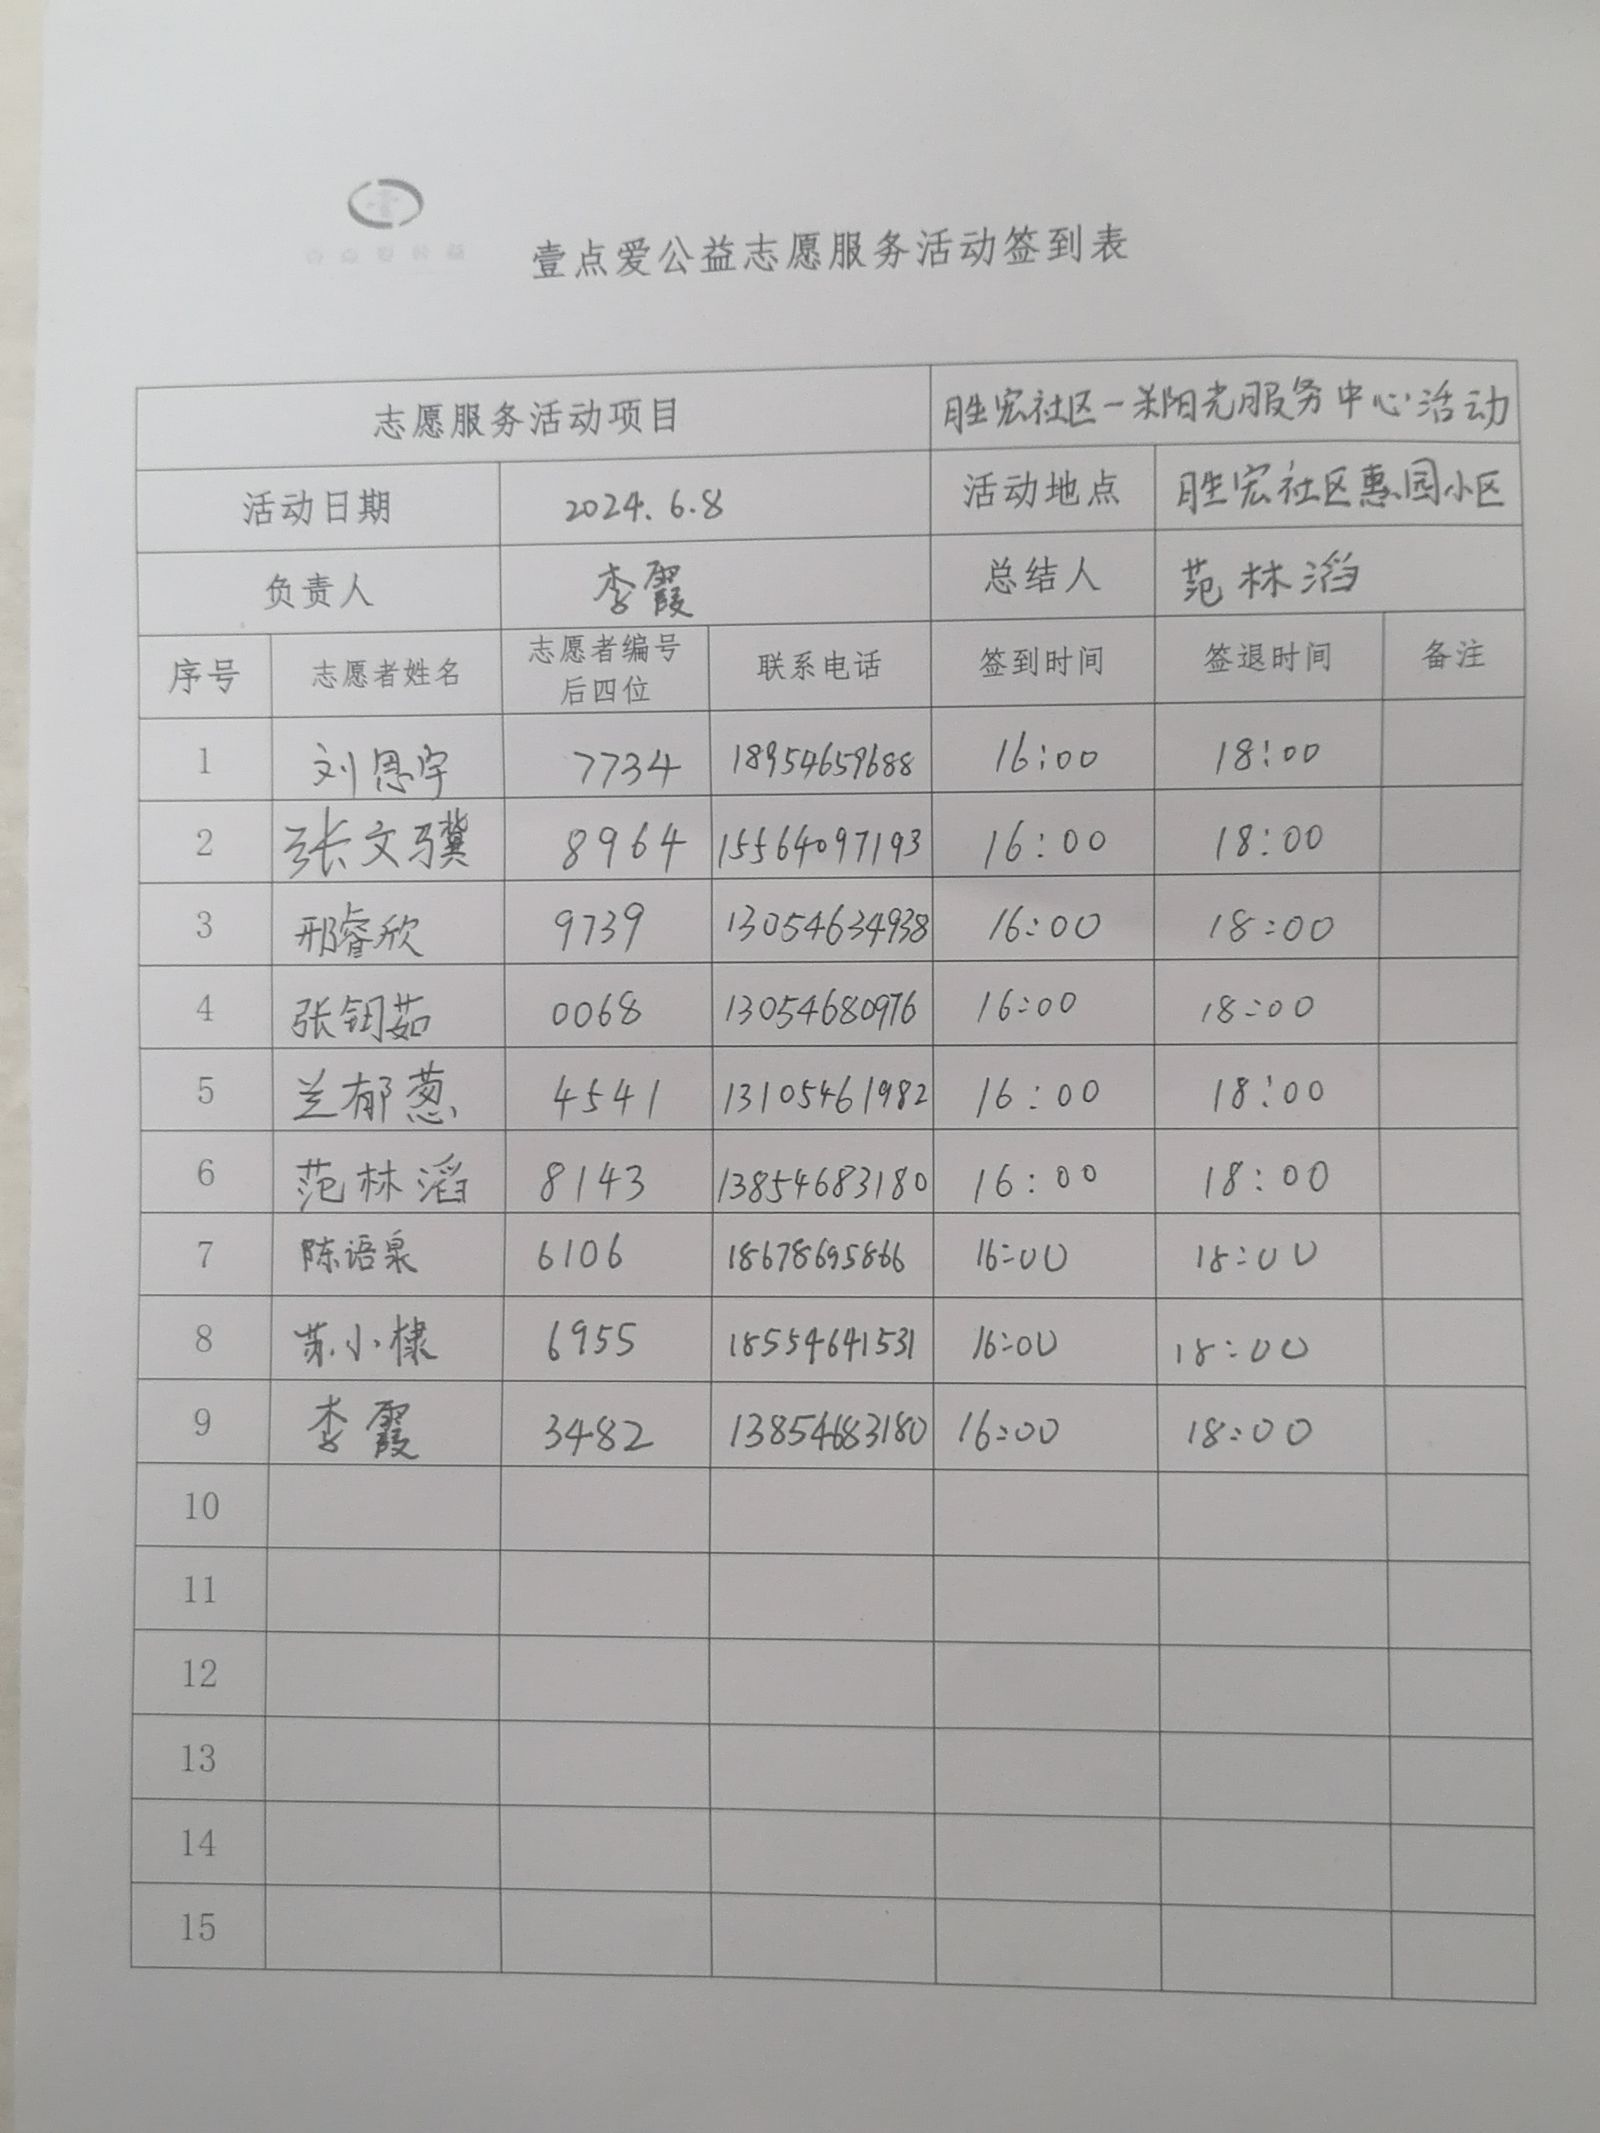 壹点爱公益志愿服务活动签到表
志愿服务活动项目 胜宏社区一米阳光服务中心活动
活动日期 2024.6.8 活动地点 胜宏社区惠园小区
负责人 李霞 总结人 范林滔
序号 志愿者姓名 志愿者编号后四位 联系电话 签到时间 签退时间 备注
1 刘恩宇 7734 18954659688 16:00 18:00
2 张文骥 8964 15564097193 16:00 18:00
3 邢睿欣 9739 13054634938 16:00 18:00
4 张钥茹 0068 13054680976 16:00 18:00
5 兰郁葱 4541 13105461982 16:00 18:00
6 范林滔 8143 13854683180 16:00 18:00
7 陈语泉 6106 18678695866 16:00 18:00
8 苏小棣 6955 18554641531 16:00 18:00
9 李霞 3482 13854683180 16:00 18:00
10
11
12
13
14
15